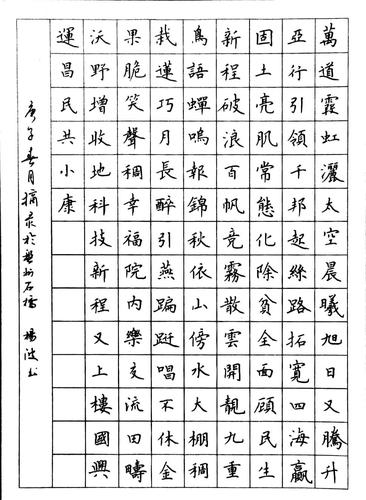 萬道霞虹灑太空晨曦旭日又騰升
亞行引領千邦起絲路拓寬四海贏
固土亮肌常態化除貧全面顧民生
新程破浪百帆竞霧散雲開靚九重
鳥語蟬鳴報錦秋依山傍水大棚稠
栽蓮巧月長醉引燕蹁跹唱不休金
果脆笑聲稠幸福院内樂交流田疇
沃野增收地科技新程又上樓國興
運昌民共小康
庚子春月摘录於盤州石橋 楊波书